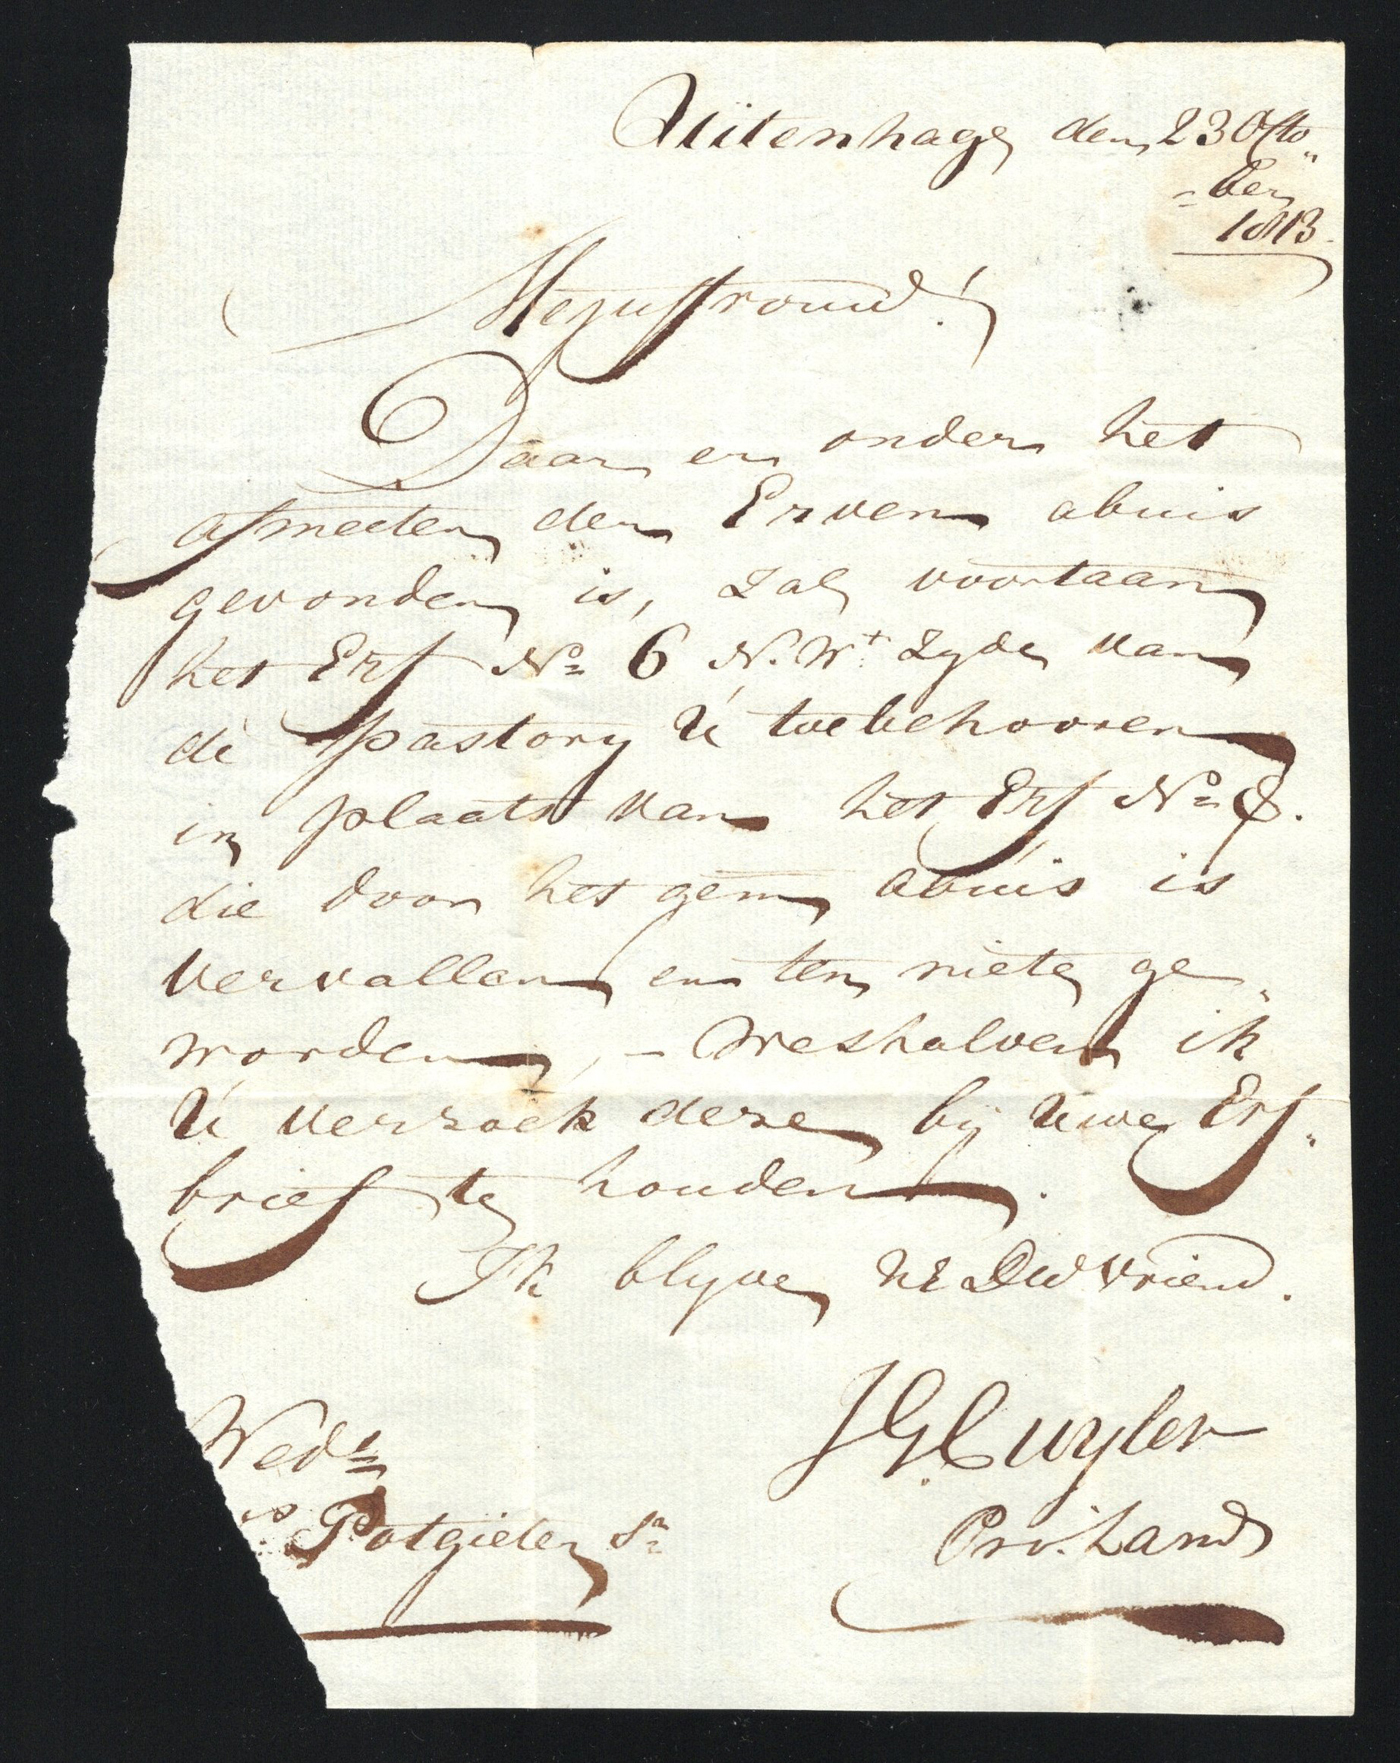 Uitenhage den 23 Octo„
„ber
1813.
Mejuffrouw!
Daar er onder het
afmeeten der Erven abuis
gevonden is, zal voortaan
het Erf No 6 N. Wt Zyde van
de pastory U toebehooren
in plaats van het Erf No 8.
die door het gem abuis is
vervallen en ten niete ge„
worden, – Weshalven ik
U verzoek deze bij uwe Erf„
brief te houden.
Ik blyve UE DW Vriend.
JGCuyler
Wedr
Potgieter Sr
Prov. Land